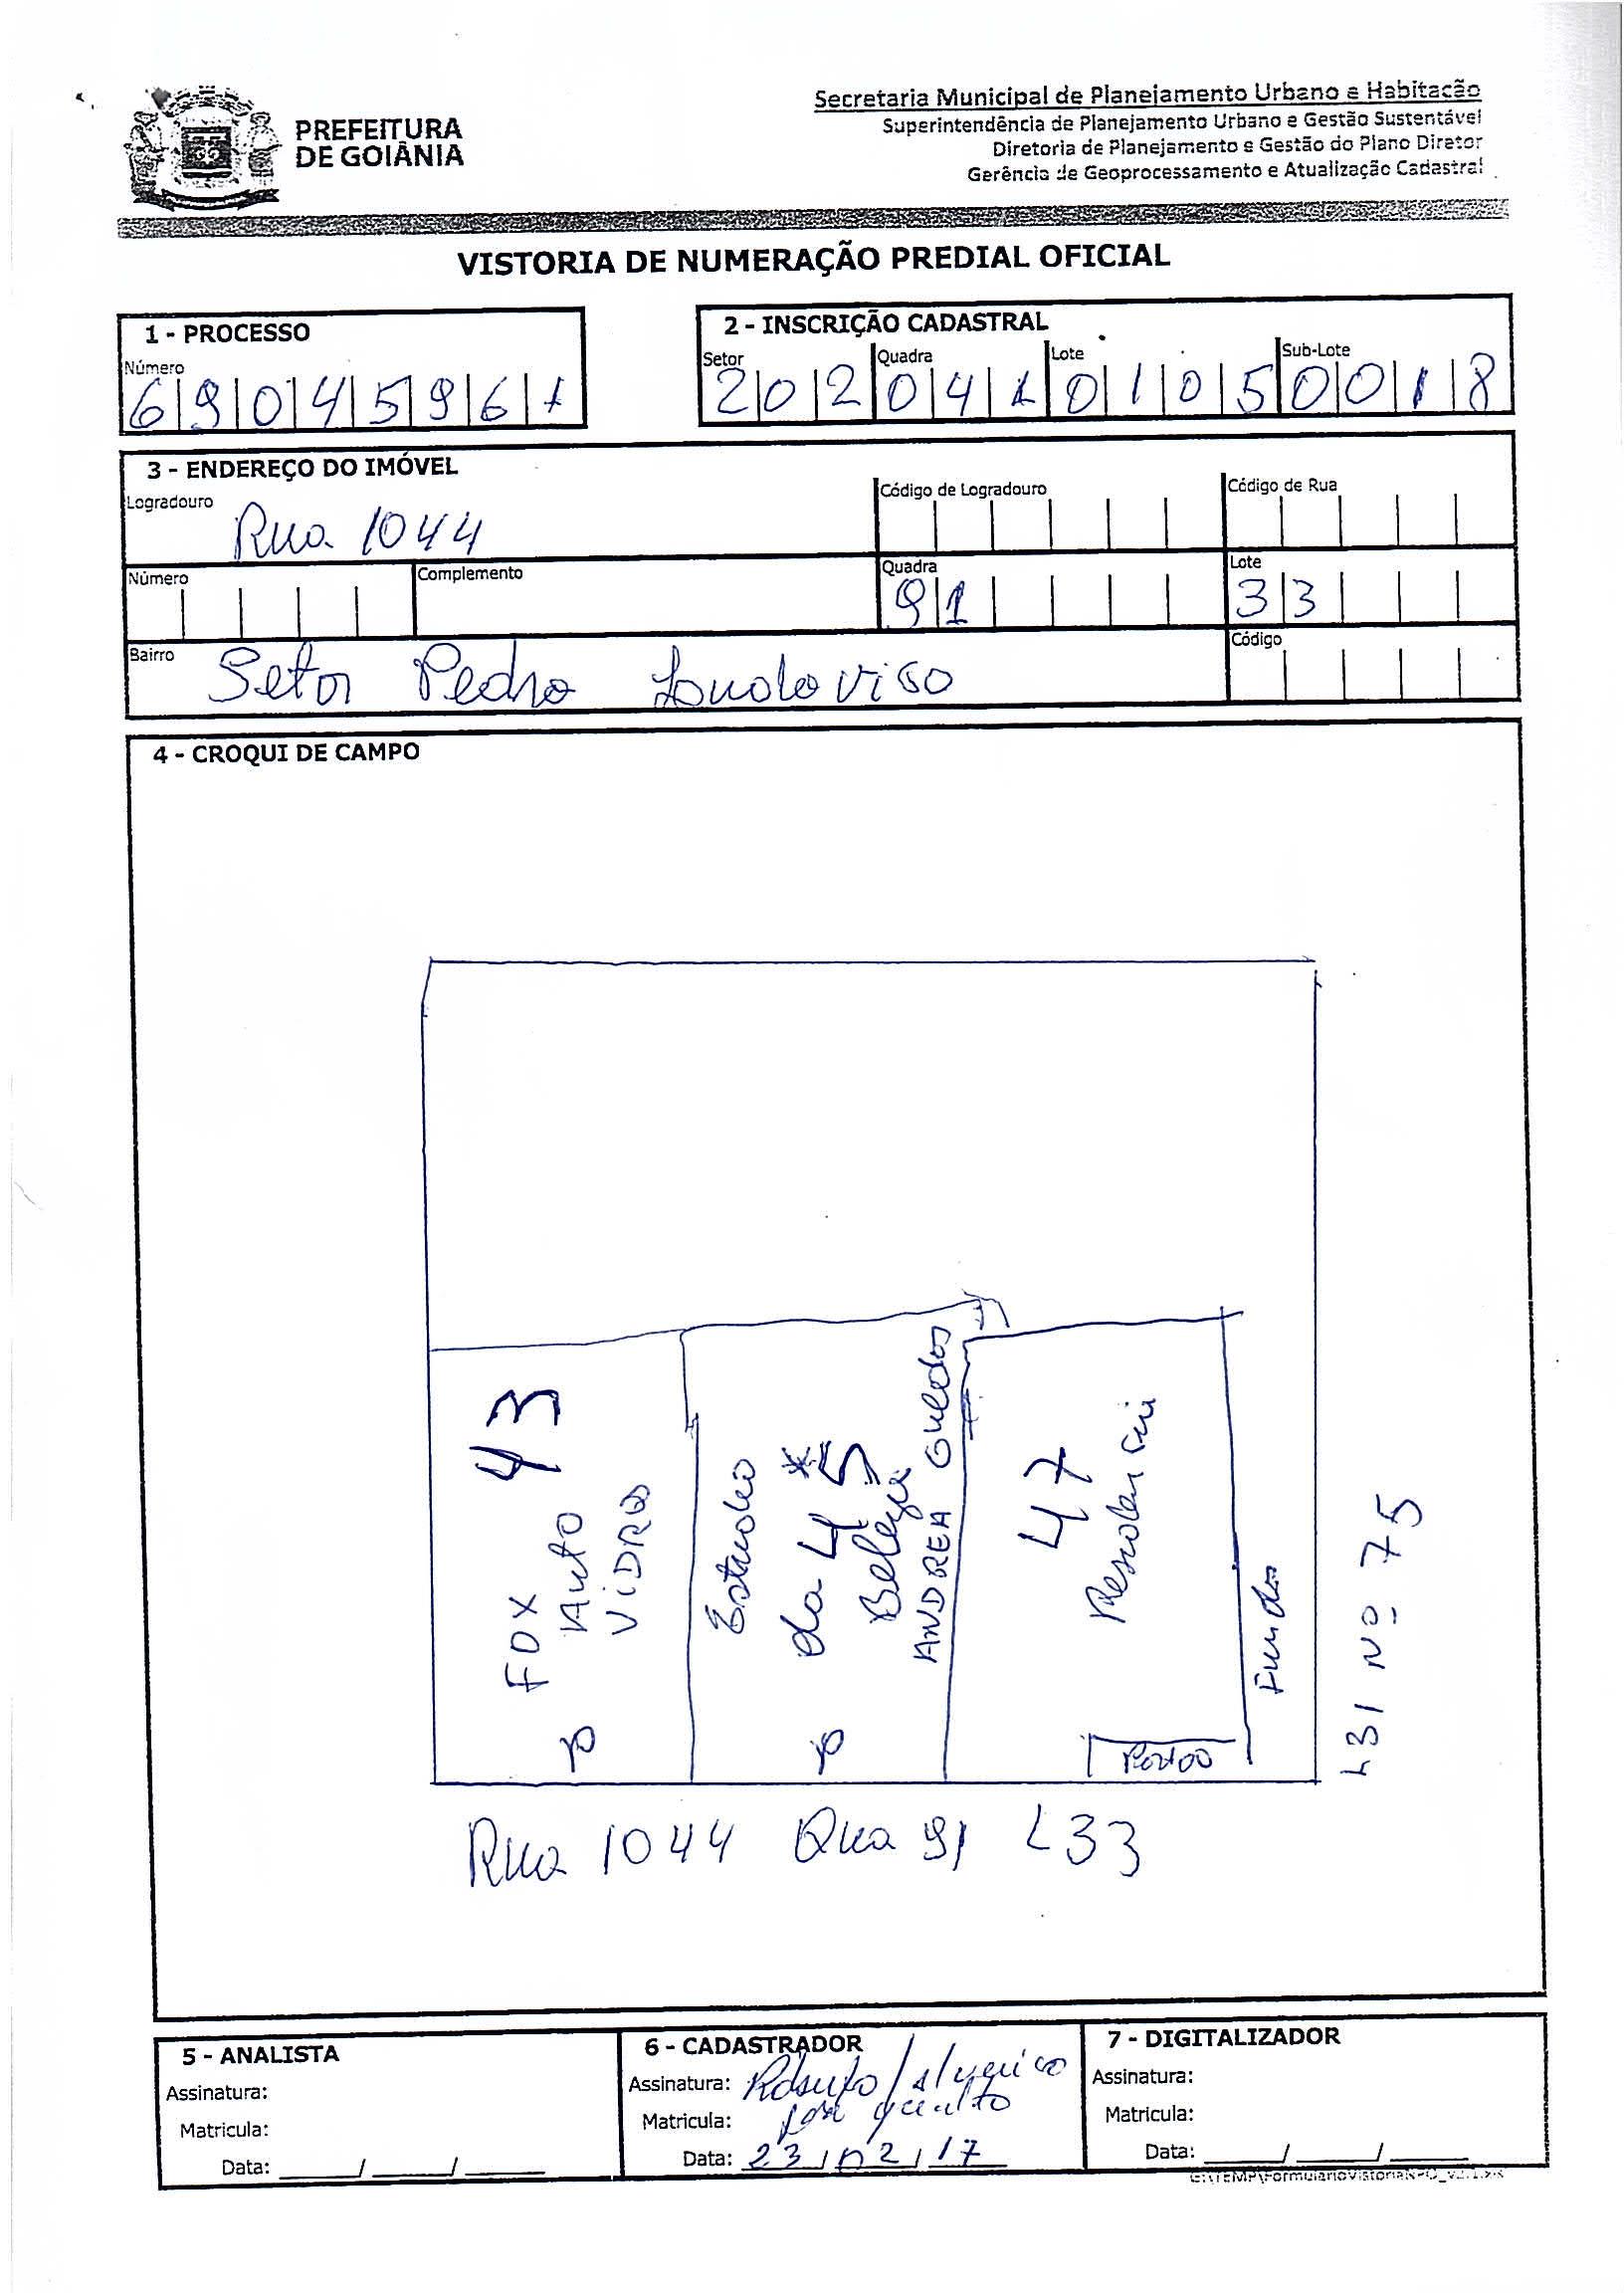 PREFEITURA
DE GOIÂNIA
Secretaria Municipal de Planejamento Urbano e Habitação
Superintendência de Planejamento Urbano e Gestão Sustentável
Diretoria de Planejamento e Gestão do Plano Diretor
Gerência de Geoprocessamento e Atualização Cadastral
VISTORIA DE NUMERAÇÃO PREDIAL OFICIAL
1 - PROCESSO
Número
69045961
2 - INSCRIÇÃO CADASTRAL
Setor Quadra Lote Sub-Lote
20204101050018
3 - ENDEREÇO DO IMÓVEL
Logradouro Rua 1044
Código de Logradouro
Código de Rua
Número
Complemento
Quadra 91
Lote 33
Bairro Setor Pedro
Código
4 - CROQUI DE CAMPO
43
FOX
Auto
VIDROS
Estudio
da 45*
Beleza
ANDREA Guedes
47
Residencia
Fundos
Portão
L 31 Nº 75
Rua 1044 Qua 91 L33
5 - ANALISTA
Assinatura:
Matricula:
Data: ___/___/___
6 - CADASTRADOR
Assinatura:
Matricula:
Data: 23/02/17
7 - DIGITALIZADOR
Assinatura:
Matricula:
Data: ___/___/___